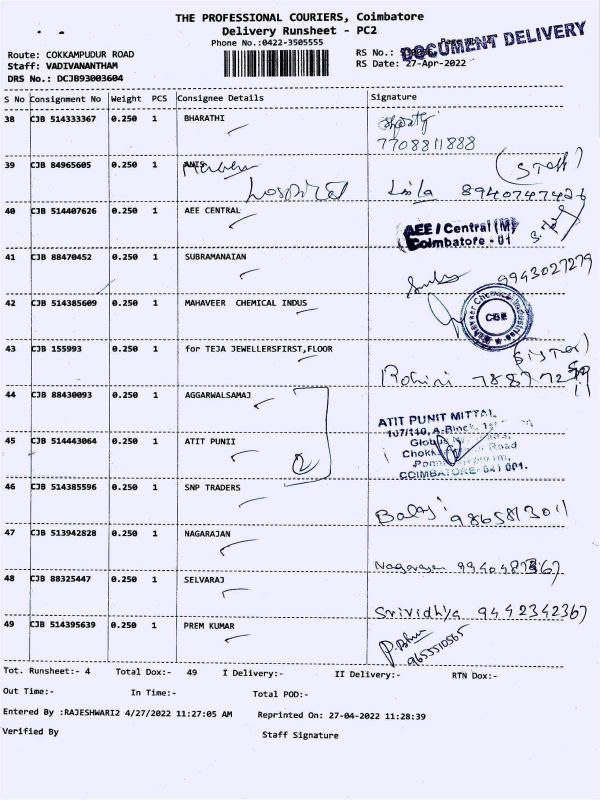 THE PROFESSIONAL COURIERS, Coimbatore
Delivery Runsheet - PC2
Phone No.:0422-3505555
DOCUMENT DELIVERY
Route: COKKAMPUDUR ROAD
RS No.:
Staff: VADIVANANTHAM
RS Date: 27-Apr-2022
DRS No.: DCJB93003604
S No Consignment No Weight PCS Consignee Details Signature
38 CJB 514333367 0.250 1 BHARATHI
7708811888
39 CJB 84965605 0.250 1 ANIS
(Staff)
Hospital Lisla 8940747426
40 CJB 514407626 0.250 1 AEE CENTRAL
AEE / Central (M)
Coimbatore - 01
41 CJB 88470452 0.250 1 SUBRAMANAIAN
Subs 9943027279
42 CJB 514385609 0.250 1 MAHAVEER CHEMICAL INDUS
Mahaveer Chemical Industries
CBE
43 CJB 155993 0.250 1 for TEJA JEWELLERSFIRST,FLOOR
(Sister)
Rohini
44 CJB 88430093 0.250 1 AGGARWALSAMAJ
ATIT PUNIT MITTAL
107/110, A-Block,
45 CJB 514443064 0.250 1 ATIT PUNII
2
Road
COIMBATORE-641 001.
46 CJB 514385596 0.250 1 SNP TRADERS
Balaji 9865813011
47 CJB 513942828 0.250 1 NAGARAJAN
Nagarajan
48 CJB 88325447 0.250 1 SELVARAJ
Srividhya 9442342367
49 CJB 514395639 0.250 1 PREM KUMAR
9655510565
Tot. Runsheet:- 4 Total Dox:- 49 I Delivery:- II Delivery:- RTN Dox:-
Out Time:- In Time:- Total POD:-
Entered By :RAJESHWARI2 4/27/2022 11:27:05 AM Reprinted On: 27-04-2022 11:28:39
Verified By Staff Signature